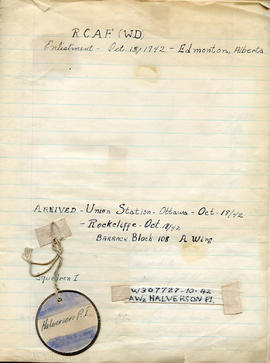 R.C.A.F. (W.D.)
Enlistment - Oct 15/1942 - Edmonton, Alberta.
ARRIVED - Union Station - Ottawa - Oct - 18/42
- Rockcliffe - Oct. 18/42
BARRACK Block 108 A Wing
Squadron I
W307727-10-42
AW2 HALVERSON P.I.
Halverson P.I.